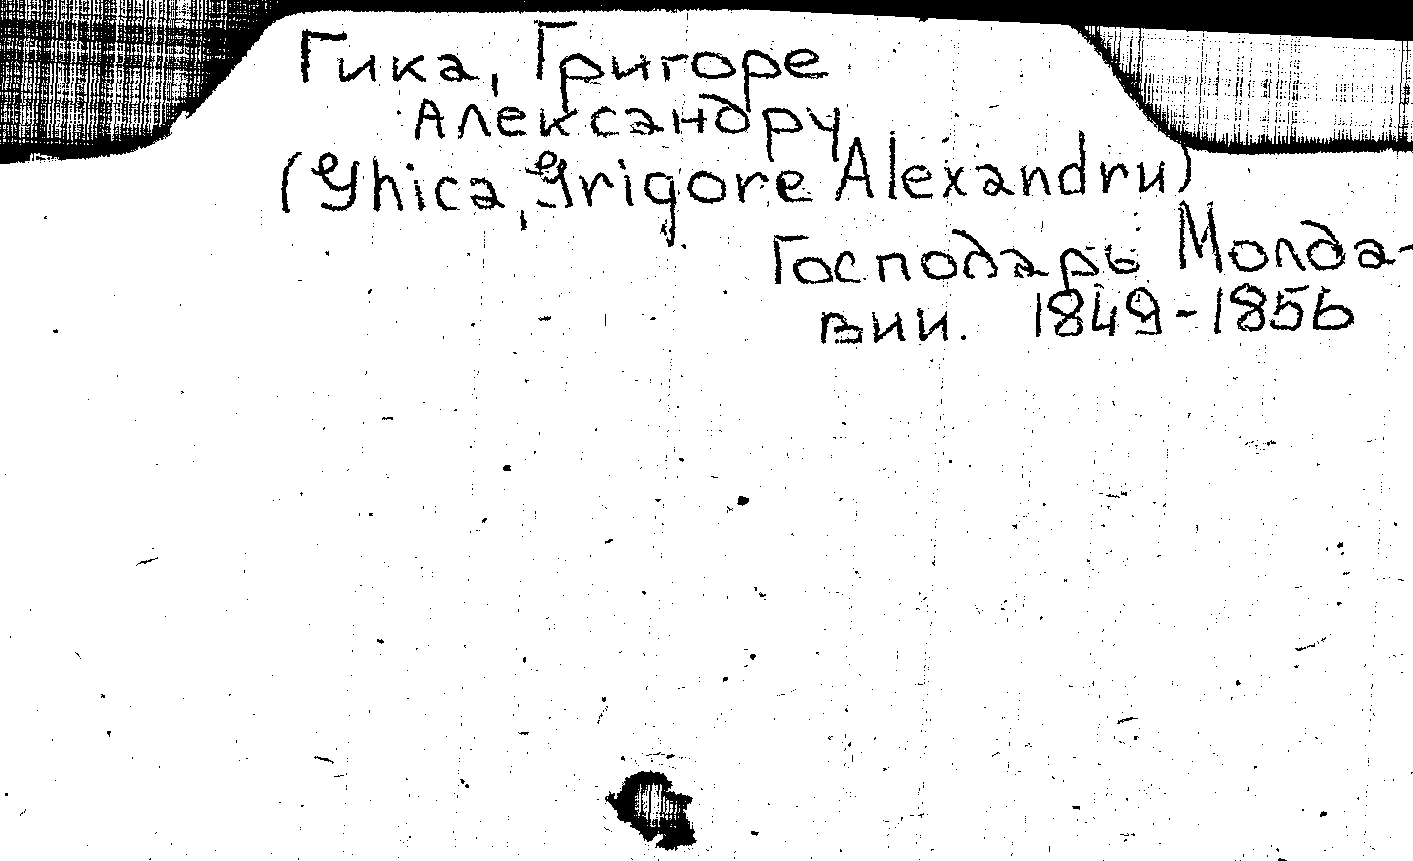 Гика, Григоре
Александру
(Ghica, Grigore Alexandru)
Господарь Молда-
вии. 1849-1856